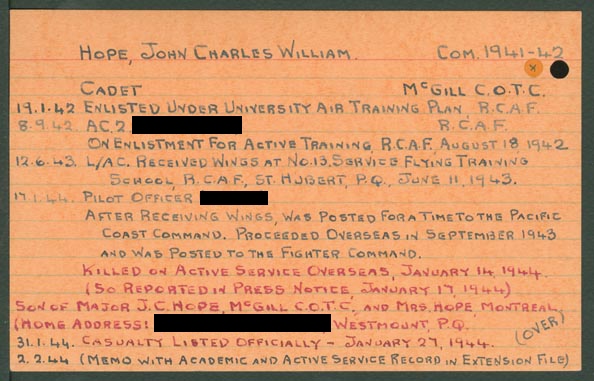 HOPE, JOHN CHARLES WILLIAM. COM. 1941-42
CADET MCGILL C.O.T.C.
19.1.42 ENLISTED UNDER UNIVERSITY AIR TRAINING PLAN R.C.A.F.
8.9.42. AC.2. R.C.A.F.
ON ENLISTMENT FOR ACTIVE TRAINING, R.C.A.F. AUGUST 18 1942
12.6.43. L/AC. RECEIVED WINGS AT NO.13, SERVICE FLYING TRAINING
SCHOOL, R.C.A.F., ST. HUBERT, P.Q., JUNE 11, 1943.
17.1.44. PILOT OFFICER
AFTER RECEIVING WINGS, WAS POSTED FOR A TIME TO THE PACIFIC
COAST COMMAND. PROCEEDED OVERSEAS IN SEPTEMBER 1943
AND WAS POSTED TO THE FIGHTER COMMAND.
KILLED ON ACTIVE SERVICE OVERSEAS, JANUARY 14, 1944.
(SO REPORTED IN PRESS NOTICE, JANUARY 17, 1944)
SON OF MAJOR J.C. HOPE, MCGILL C.O.T.C., AND MRS. HOPE, MONTREAL,
(HOME ADDRESS: WESTMOUNT, P.Q.
(OVER)
31.1.44. CASUALTY LISTED OFFICIALLY - JANUARY 27, 1944.
2.2.44 (MEMO WITH ACADEMIC AND ACTIVE SERVICE RECORD IN EXTENSION FILE)